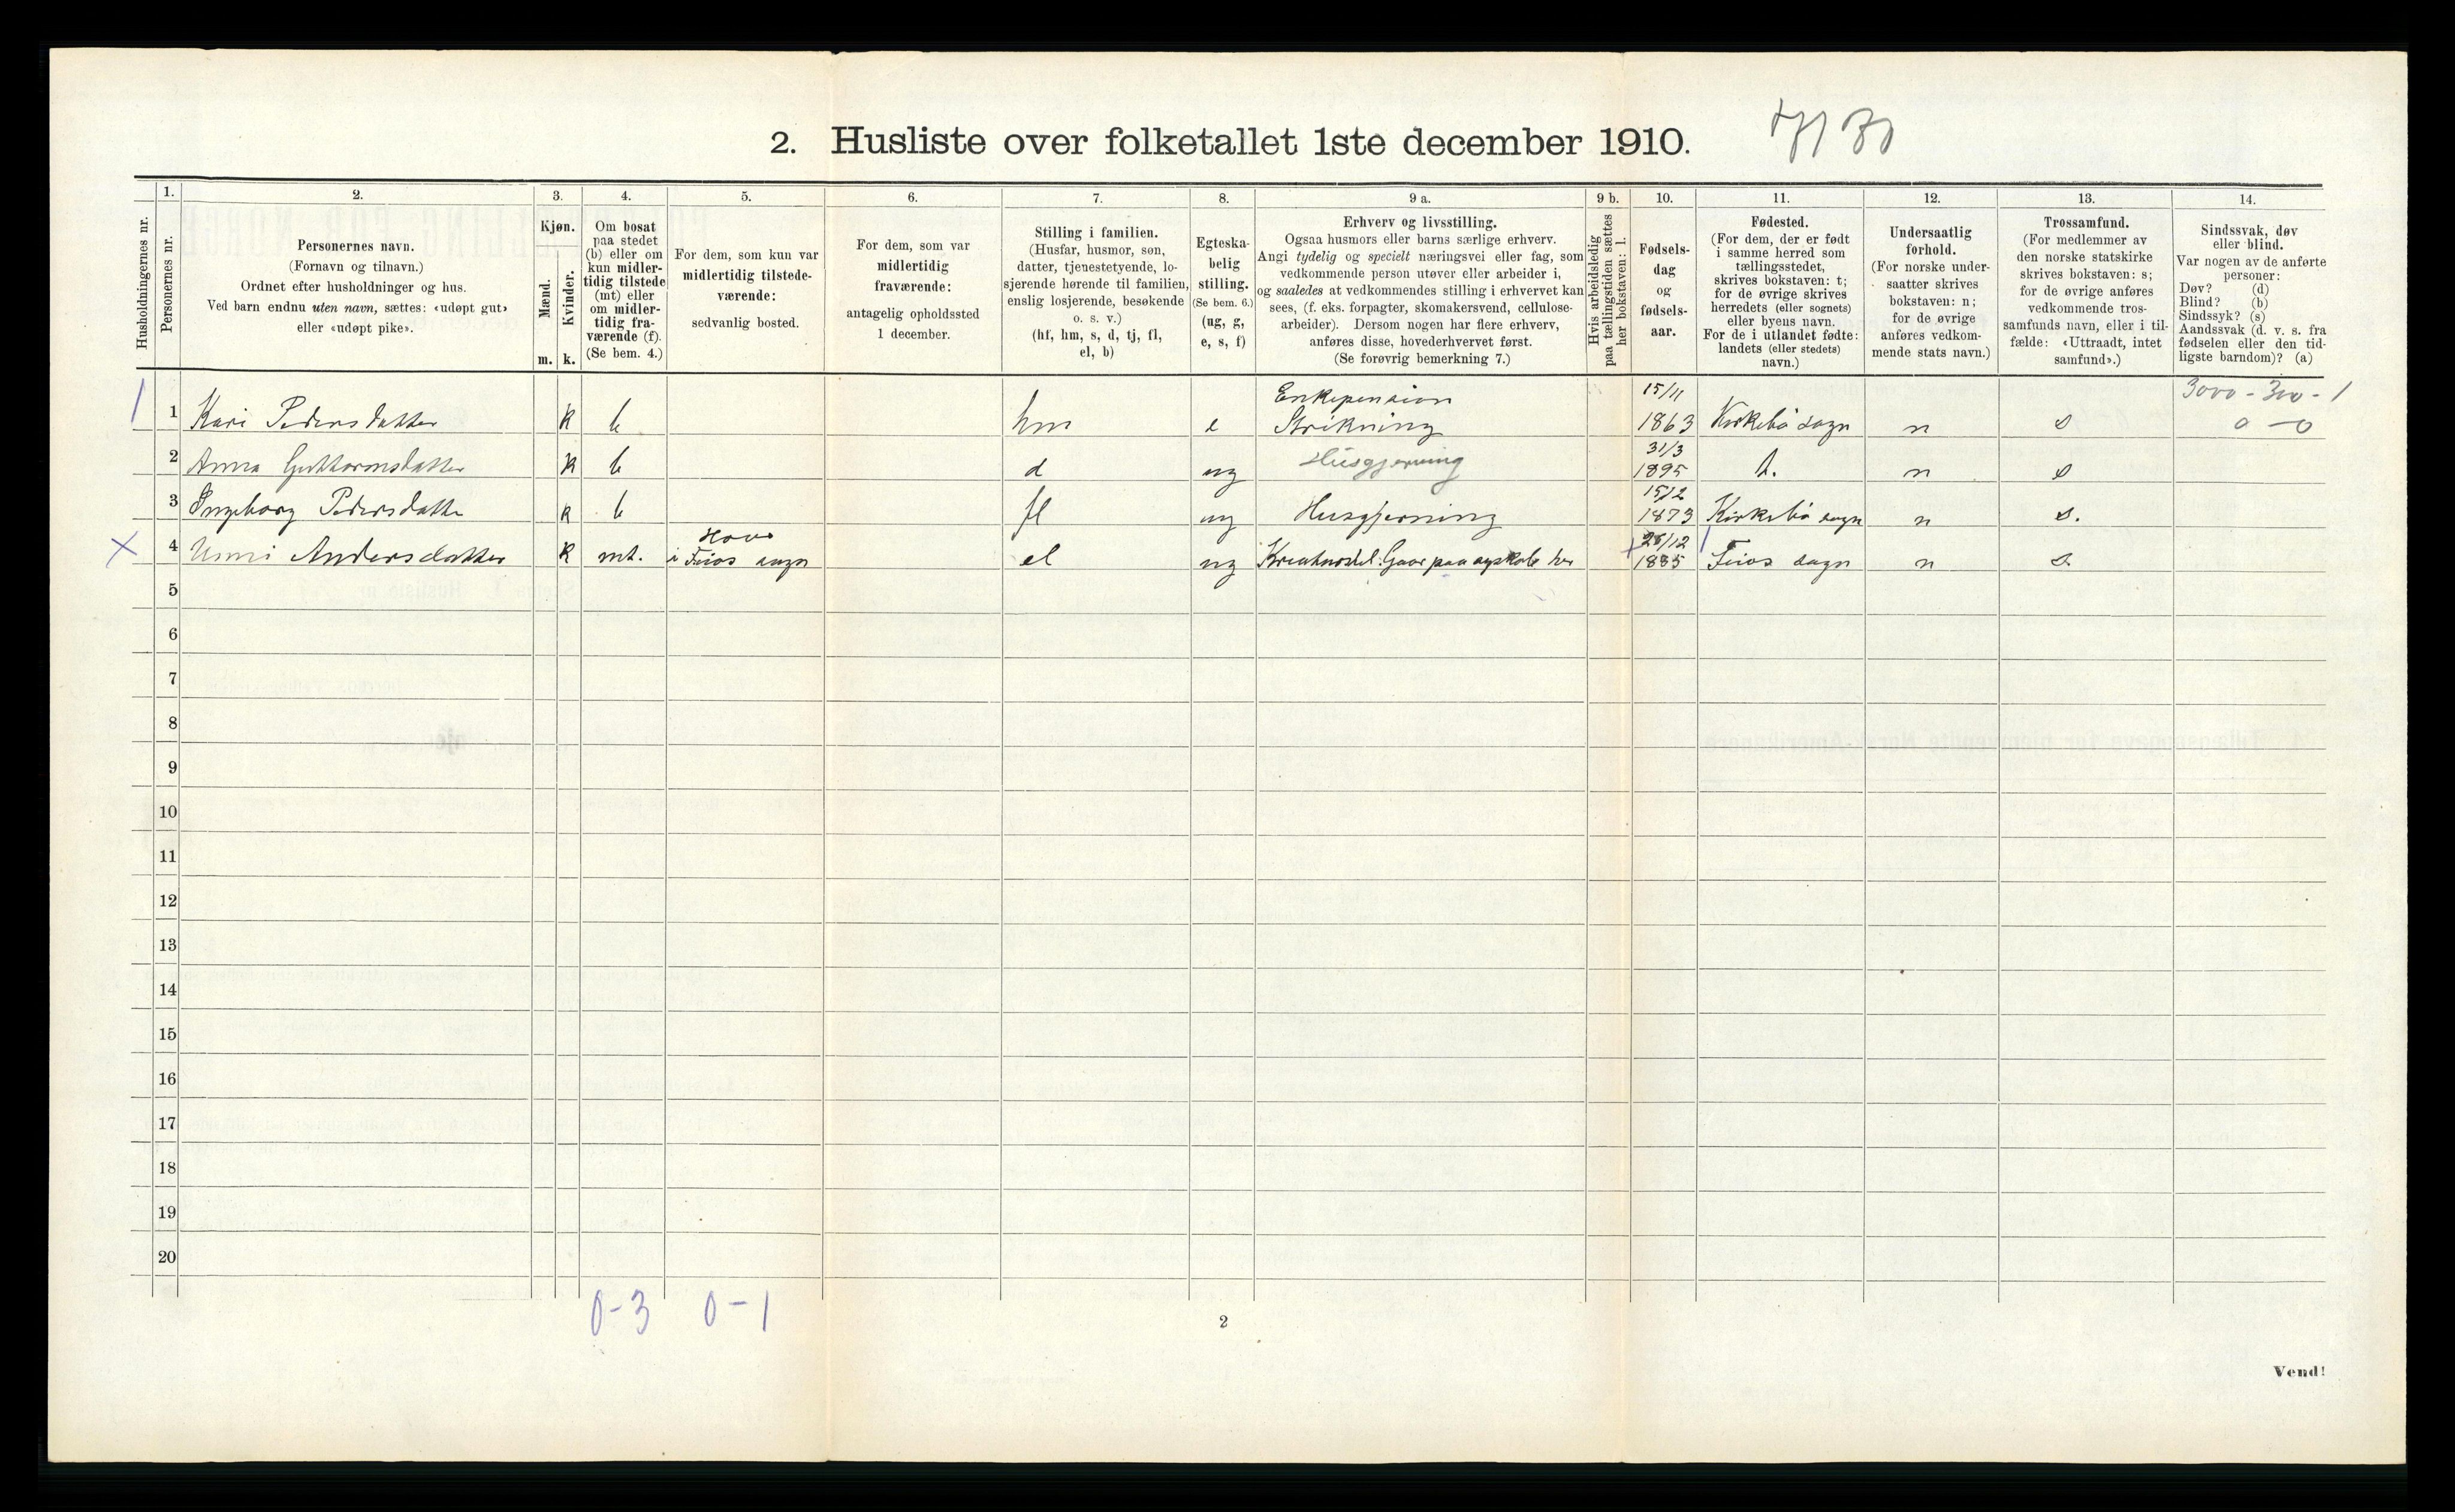 2. Husliste over folketallet 1ste december 1910.
Husholdningernes nr.
1.
Personernes nr.
2.
Personernes navn.
(Fornavn og tilnavn.)
Ordnet efter husholdninger og hus.
Ved barn endnu uten navn, sættes: «udøpt gut»
eller «udøpt pike».
3.
Kjøn.
Mænd.
Kvinder.
m. k.
4.
Om bosat
paa stedet
(b) eller om
kun midler-
tidig tilstede
(mt) eller
om midler-
tidig fra-
værende (f).
(Se bem. 4.)
5.
For dem, som kun var
midlertidig tilstede-
værende:
sedvanlig bosted.
6.
For dem, som var
midlertidig
fraværende:
antagelig opholdssted
1 december.
7.
Stilling i familien.
(Husfar, husmor, søn,
datter, tjenestetyende, lo-
sjerende hørende til familien,
enslig losjerende, besøkende
o. s. v.)
(hf, hm, s, d, tj, fl,
el, b)
8.
Egteska-
belig
stilling.
(Se bem. 6.)
(ug, g,
e, s, f)
9 a.
Erhverv og livsstilling.
Ogsaa husmors eller barns særlige erhverv.
Angi tydelig og specielt næringsvei eller fag, som
vedkommende person utøver eller arbeider i,
og saaledes at vedkommendes stilling i erhvervet kan
sees, (f. eks. forpagter, skomakersvend, cellulose-
arbeider). Dersom nogen har flere erhverv,
anføres disse, hovederhvervet først.
(Se forøvrig bemerkning 7.)
9 b.
Hvis arbeidsledig
paa tællingstiden sættes
her bokstaven: l.
10.
Fødsels-
dag
og
fødsels-
aar.
11.
Fødested.
(For dem, der er født
i samme herred som
tællingsstedet,
skrives bokstaven: t;
for de øvrige skrives
herredets (eller sognets)
eller byens navn.
For de i utlandet fødte:
landets (eller stedets)
navn.)
12.
Undersaatlig
forhold.
(For norske under-
saatter skrives
bokstaven: n;
for de øvrige
anføres vedkom-
mende stats navn.)
13.
Trossamfund.
(For medlemmer av
den norske statskirke
skrives bokstaven: s;
for de øvrige anføres
vedkommende tros-
samfunds navn, eller i til-
fælde: «Uttraadt, intet
samfund».)
14.
Sindssvak, døv
eller blind.
Var nogen av de anførte
personer:
Døv? (d)
Blind? (b)
Sindssyk? (s)
Aandssvak (d. v. s. fra
fødselen eller den tid-
ligste barndom)? (a)
Enkepension 15/11 3000 - 300 - 1
1 1 Kari Pedersdatter k b hm e Strikning 1863 Kirkebø sogn n s 0 - 0
31/3
2 Anna Guttormsdatter k b d ug Husgjerning 1895 t. n s
15/2
3 Ingeborg Pedersdatter k b fl ug Husgjerning 1873 Kirkebø sogn n s.
28/12
x 4 Unni Andersdatter k mt. i Feios sogn el ug Gaar paa syskole her 1885 Feios sogn n s.
5
6
7
8
9
10
11
12
13
14
15
16
17
18
19
20
0-3 0-1
2
Vend!